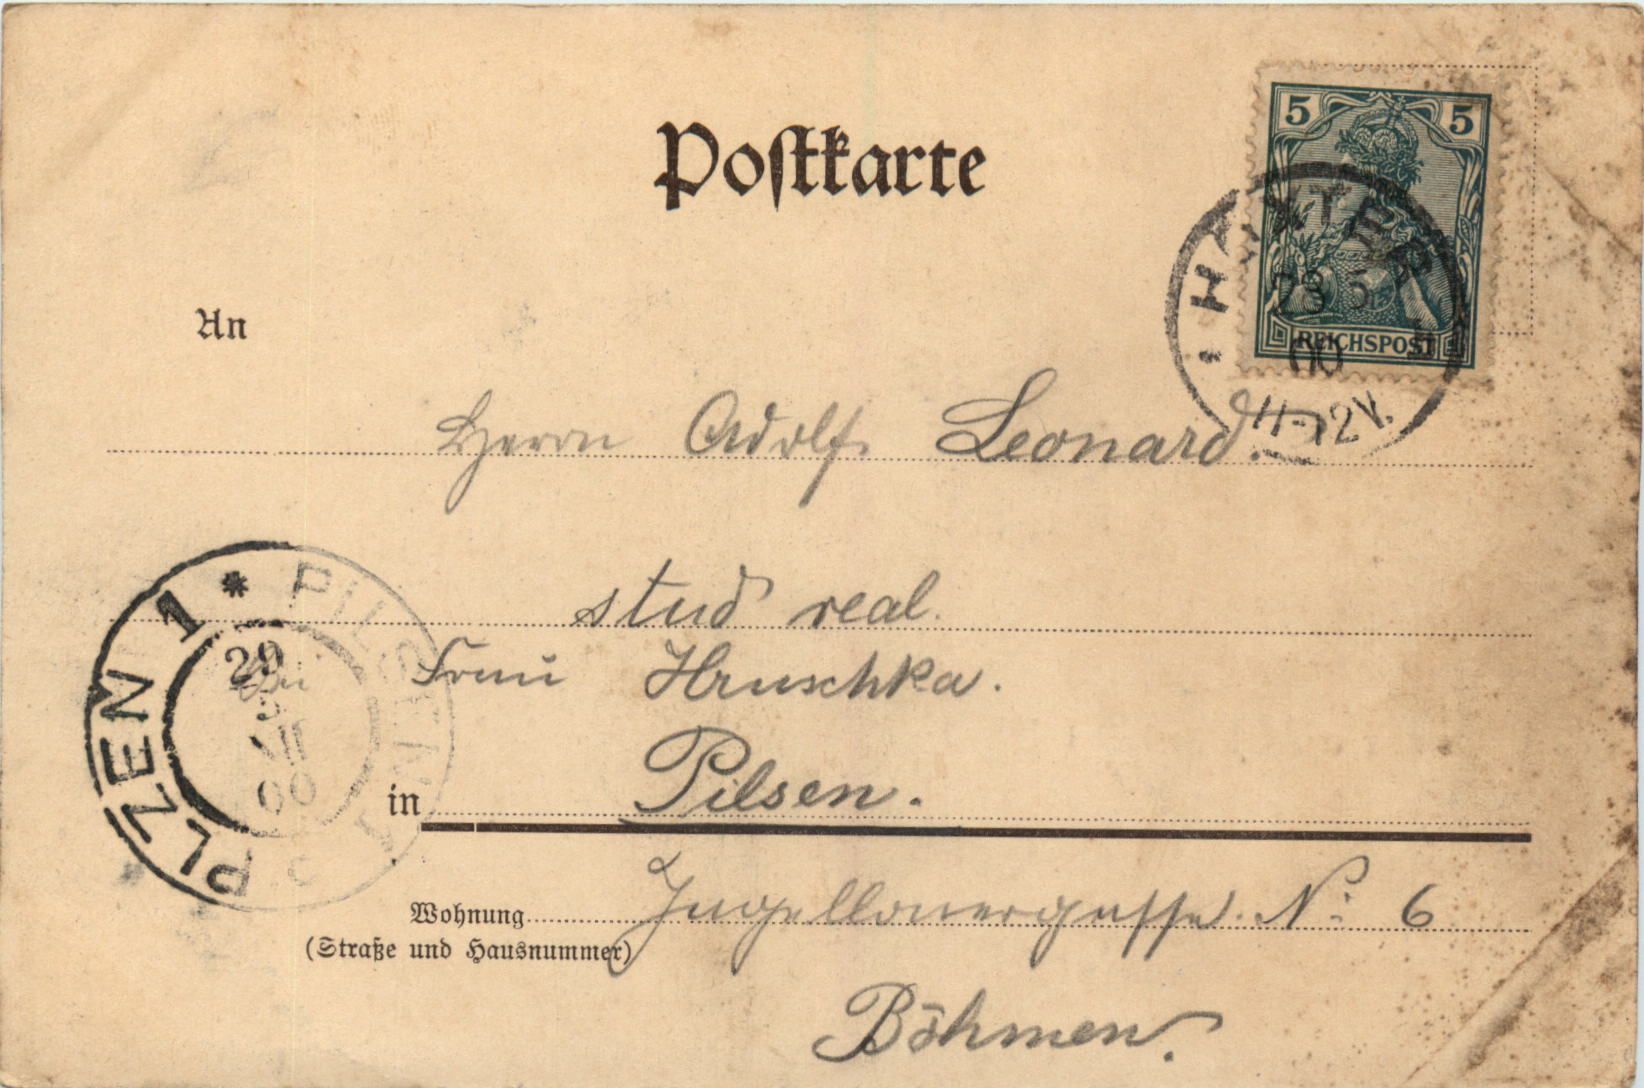 Postkarte
5 5
REICHSPOST
HÖXTER
23 5
00
11-12V.
An
Herrn Adolf Leonard.
stud real.
Frau Hruschka.
in Pilsen.
PLZEN 1 * PILSEN 1
29
VII
00
Wohnung Jagellonergasse. N: 6
(Straße und Hausnummer)
Böhmen.